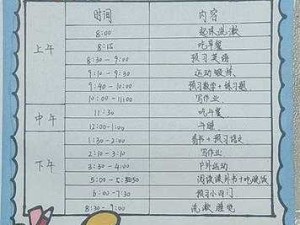 时间 内容
上午 8:00 起床洗漱
8:15 吃早餐
8:30-9:00 预习英语
9:10-9:30 运动锻炼
9:40-10:00 预习数学+练习题
10:00-11:00 写作业
中午 11:30 吃午餐
12:00-1:00 午睡
下午 1:30-2:00 看书+预习语文
2:10-3:10 写作业
3:30-4:00 户外运动
5:00-5:30 阅读课外书+吃晚饭
6:00-7:30 预习小四门
8:30-9:00 洗漱 睡觉